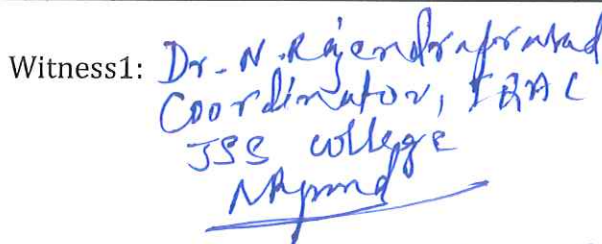 Witness1: Dr. N. Rajendraprasad
Coordinator, IQAC
JSS college